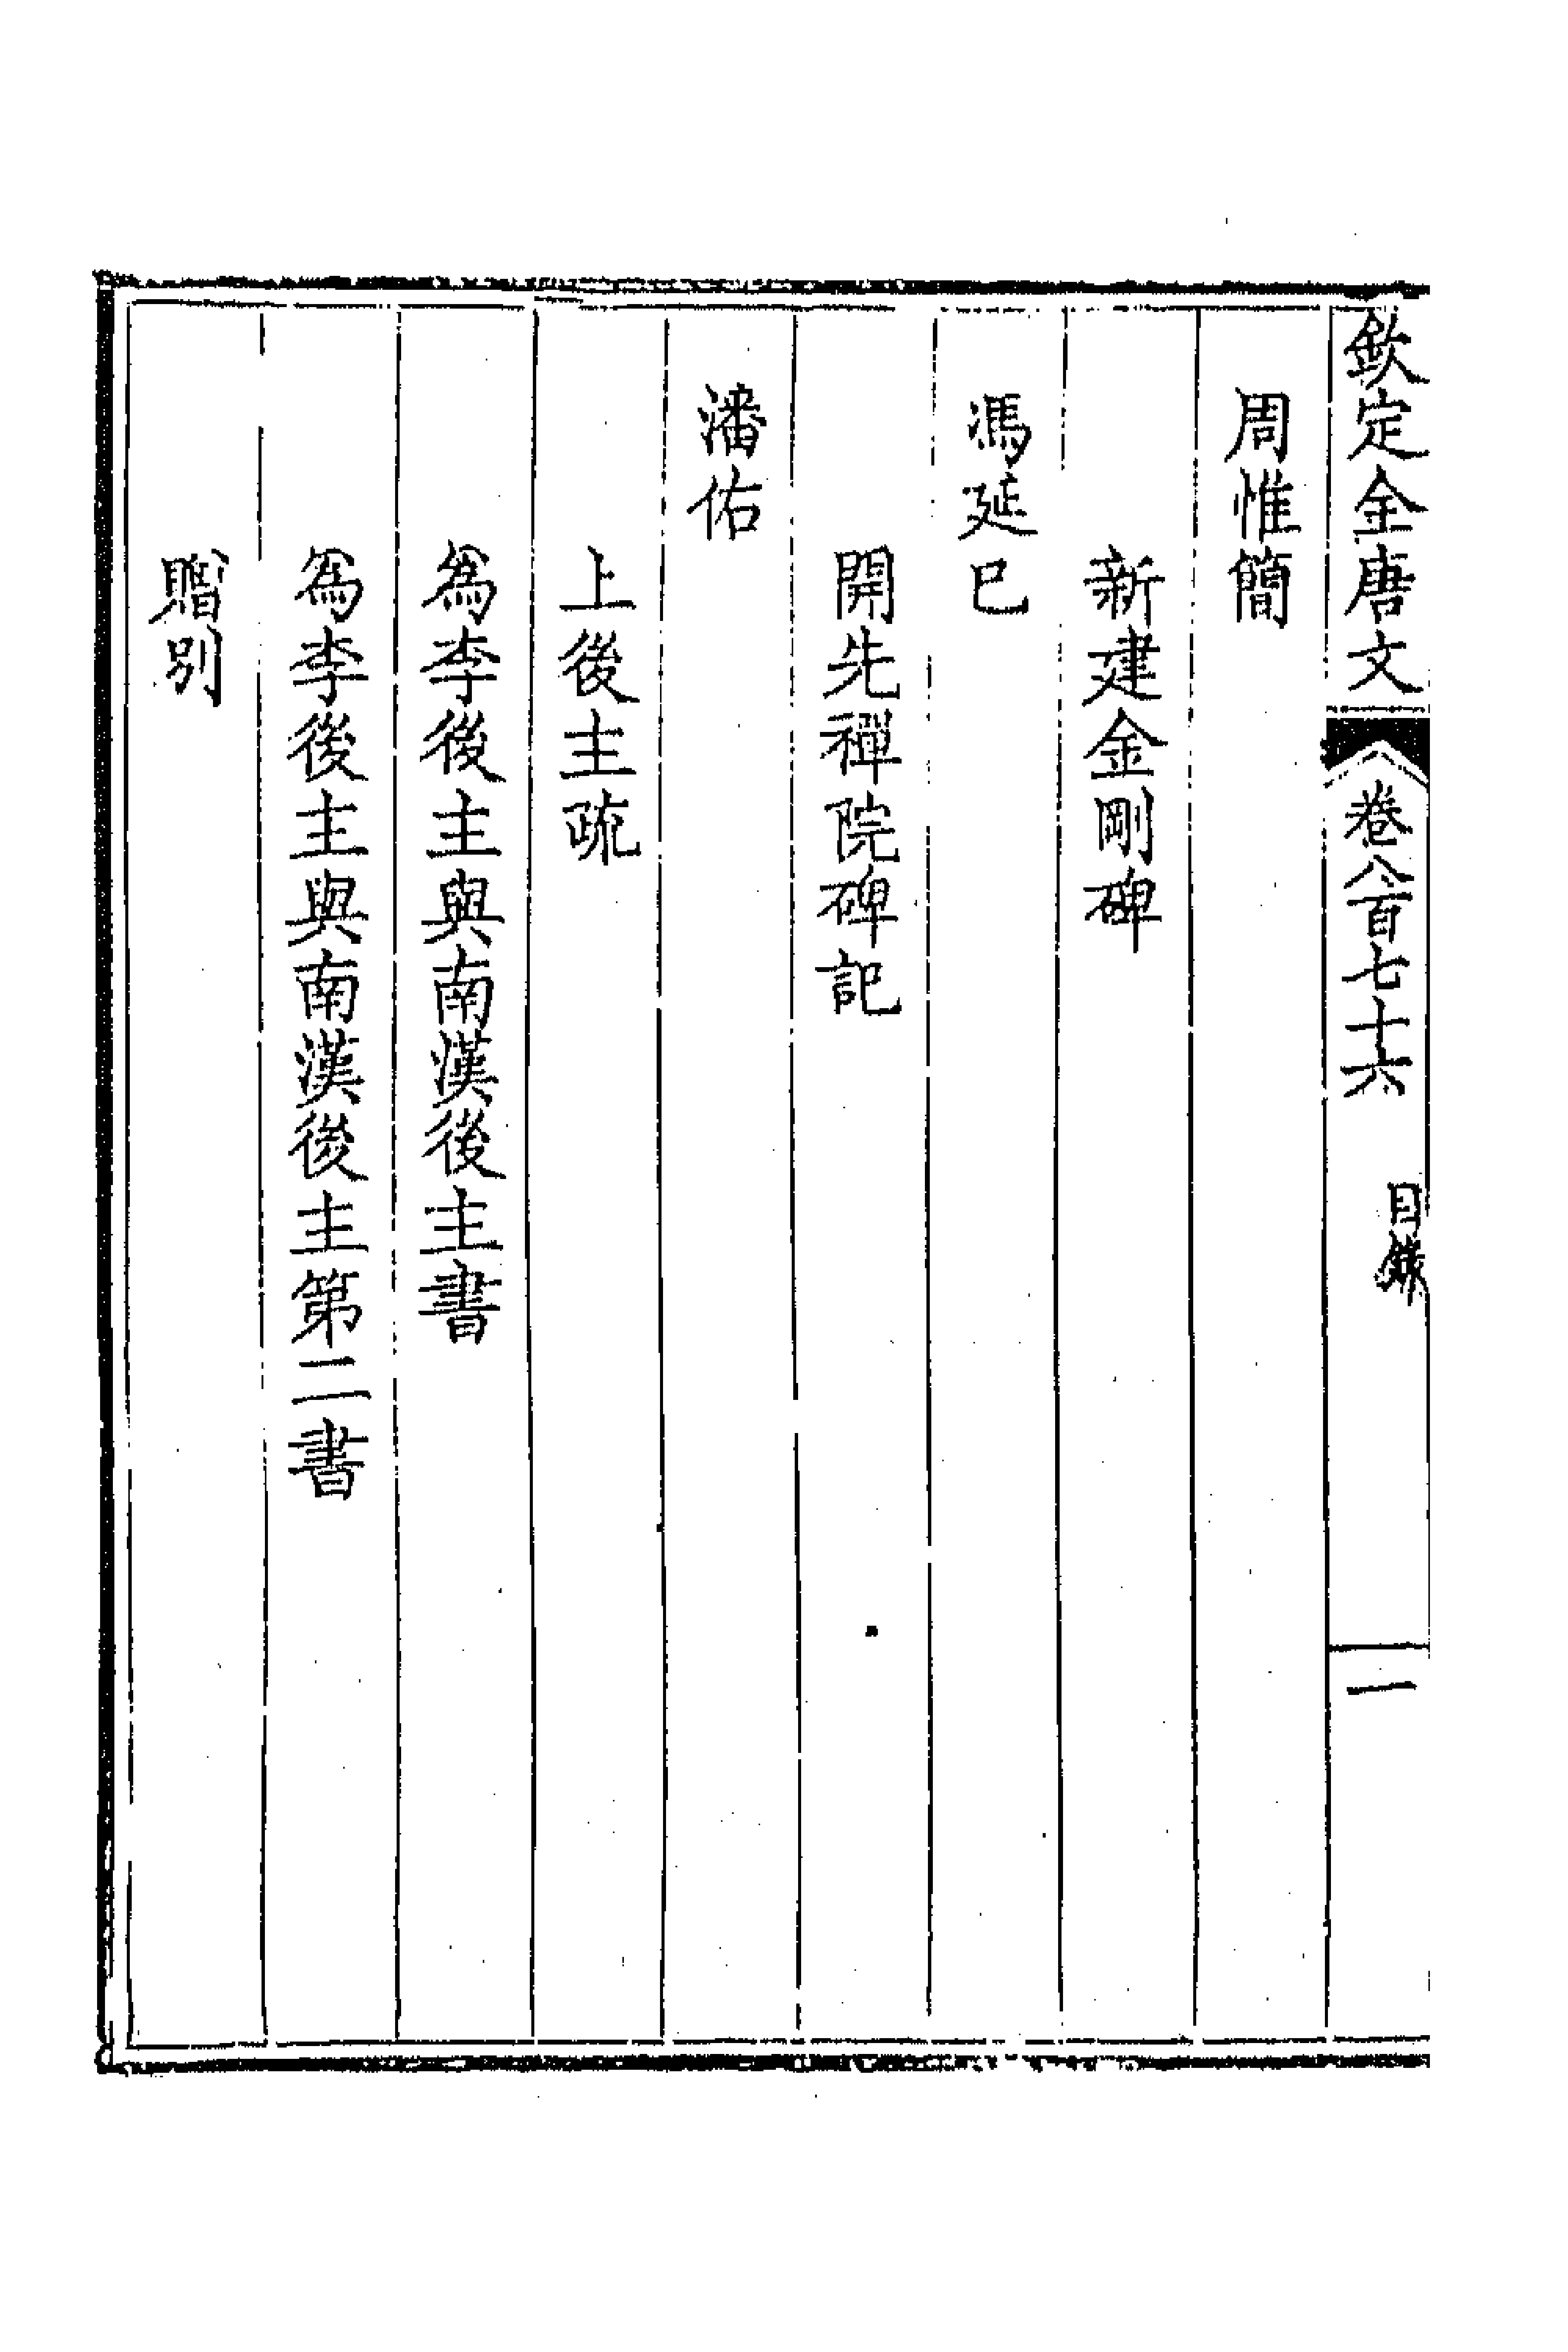 欽定全唐文 卷八百七十六 目錄 一
周惟簡
新建金剛碑
馮延巳
開先禪院碑記
潘佑
上後主疏
為李後主與南漢後主書
為李後主與南漢後主第二書
贈別